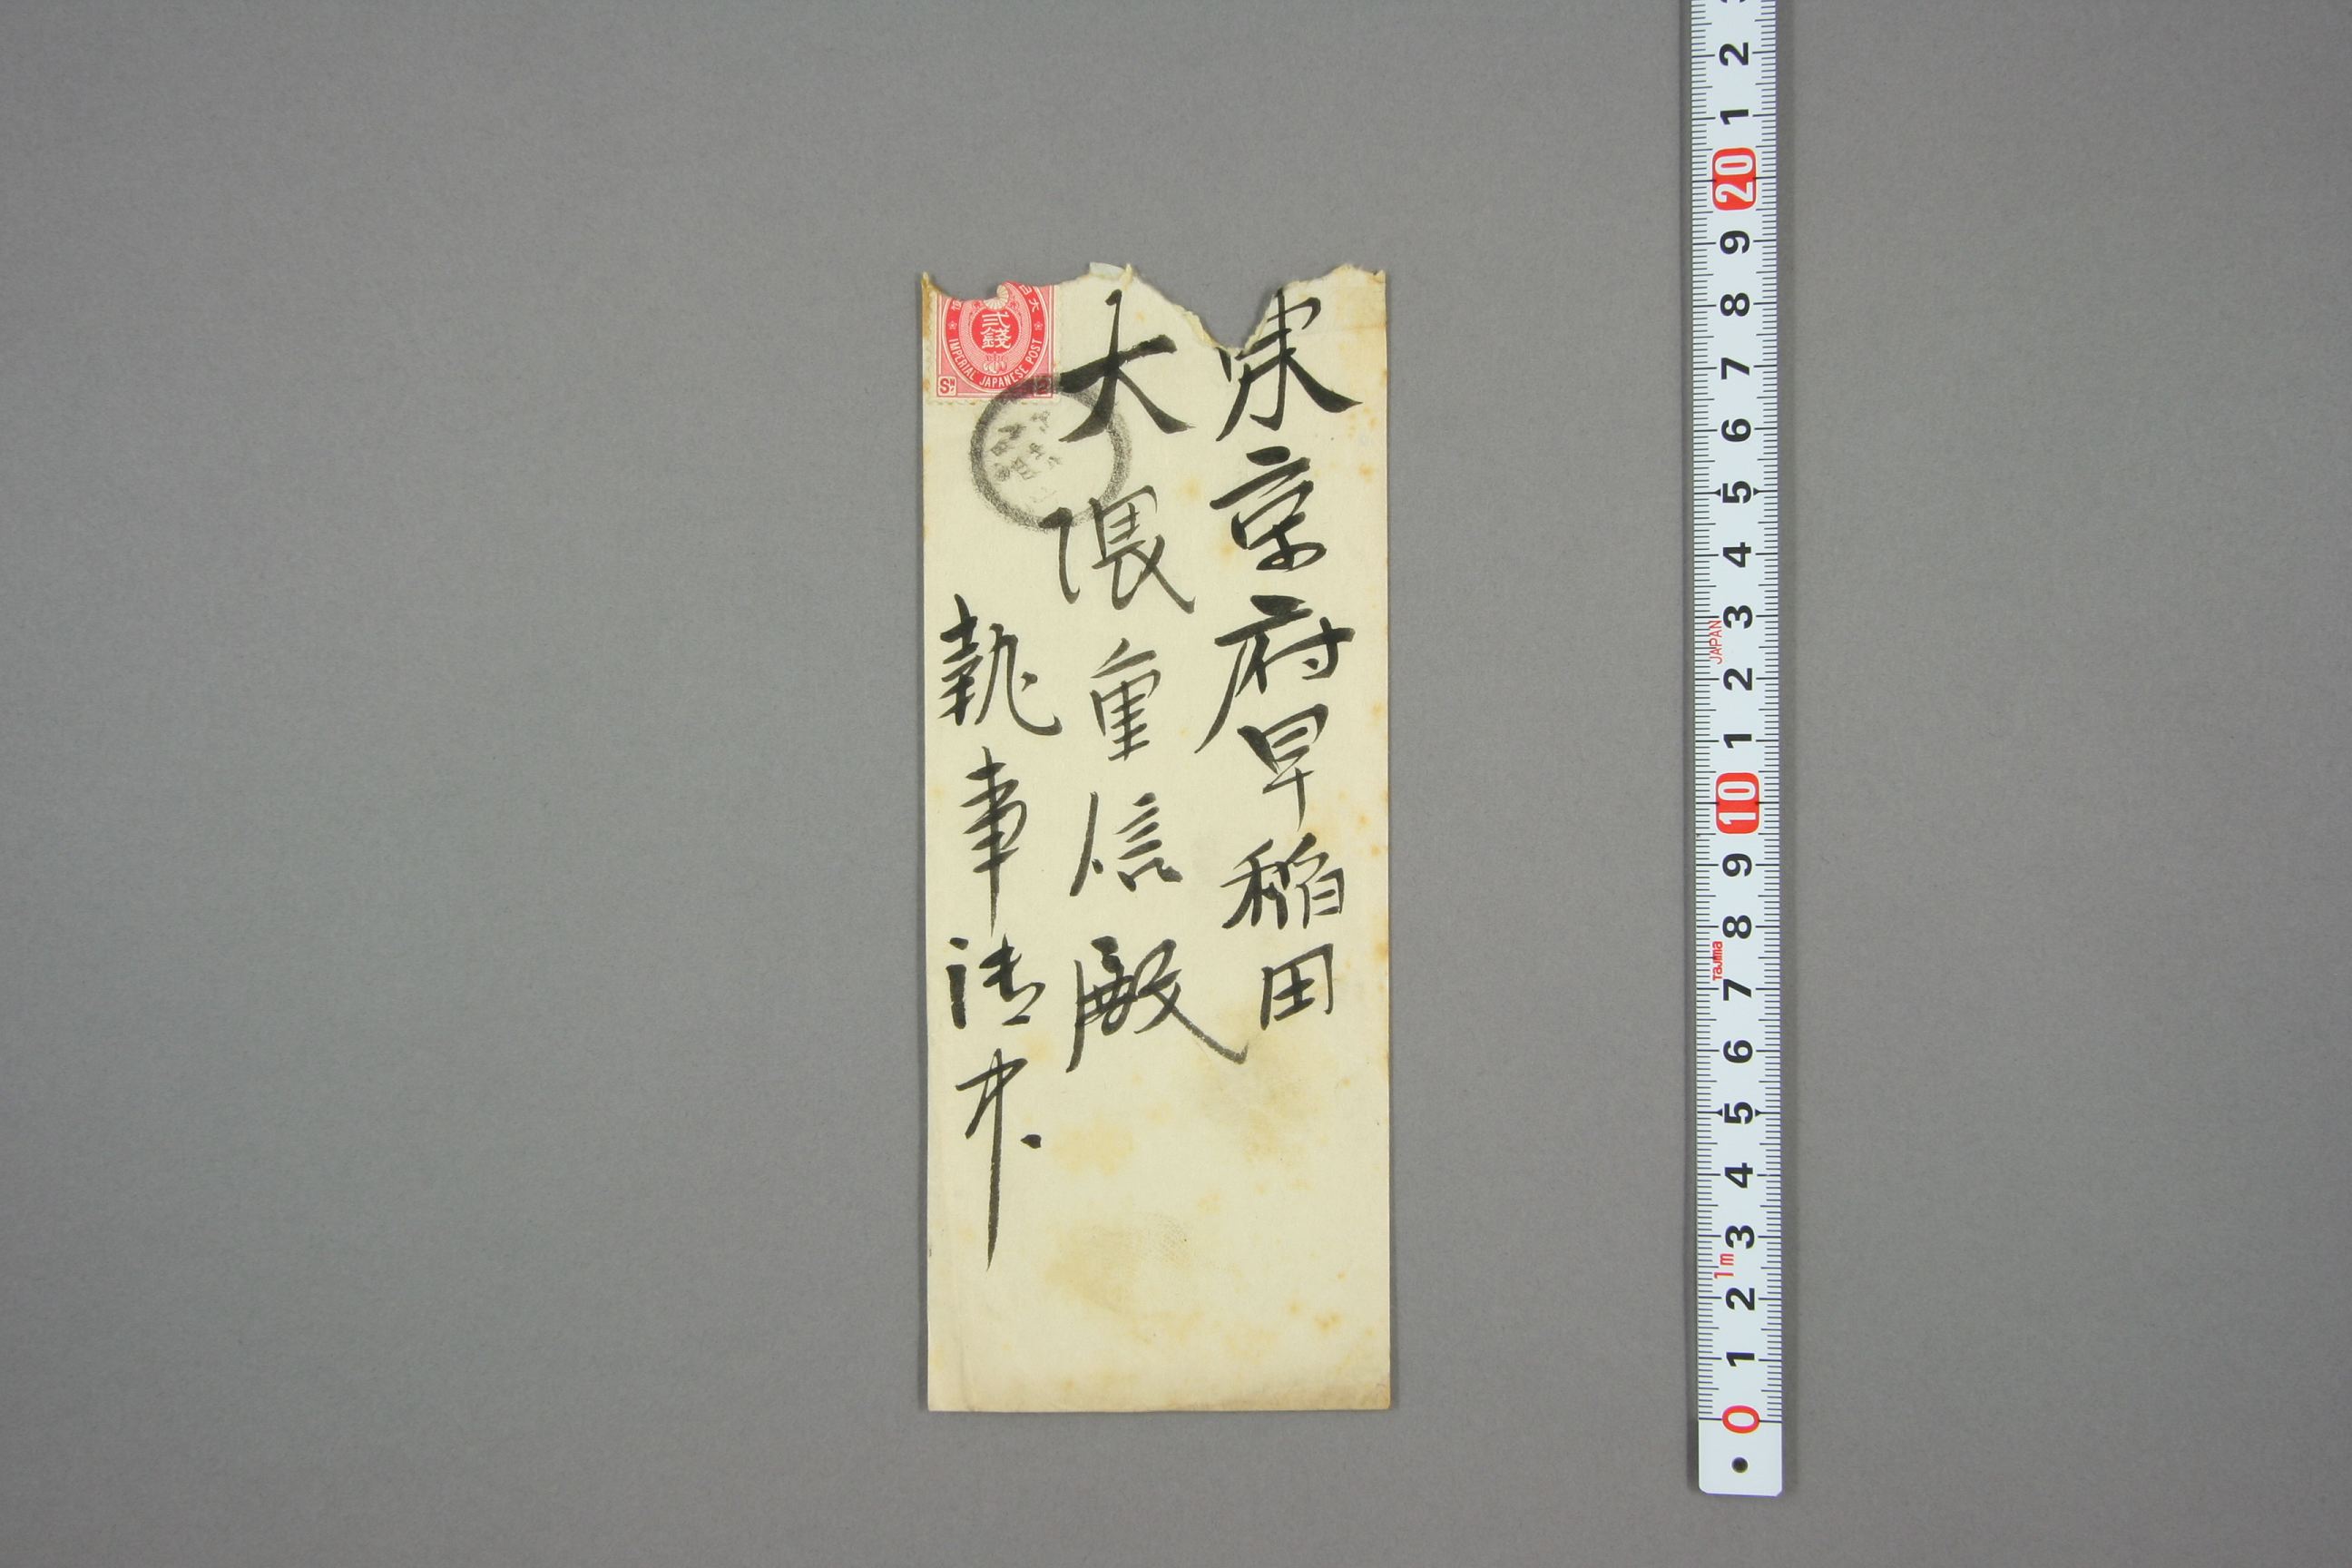 東京府早稲田
大隈重信殿
執事諸中
弐銭
IMPERIAL JAPANESE POST
Sn 2
2
1
20
9
8
7
6
5
4
3
2
1
10
9
8
7
6
5
4
3
2
1
0
JAPAN
Tajima
1m